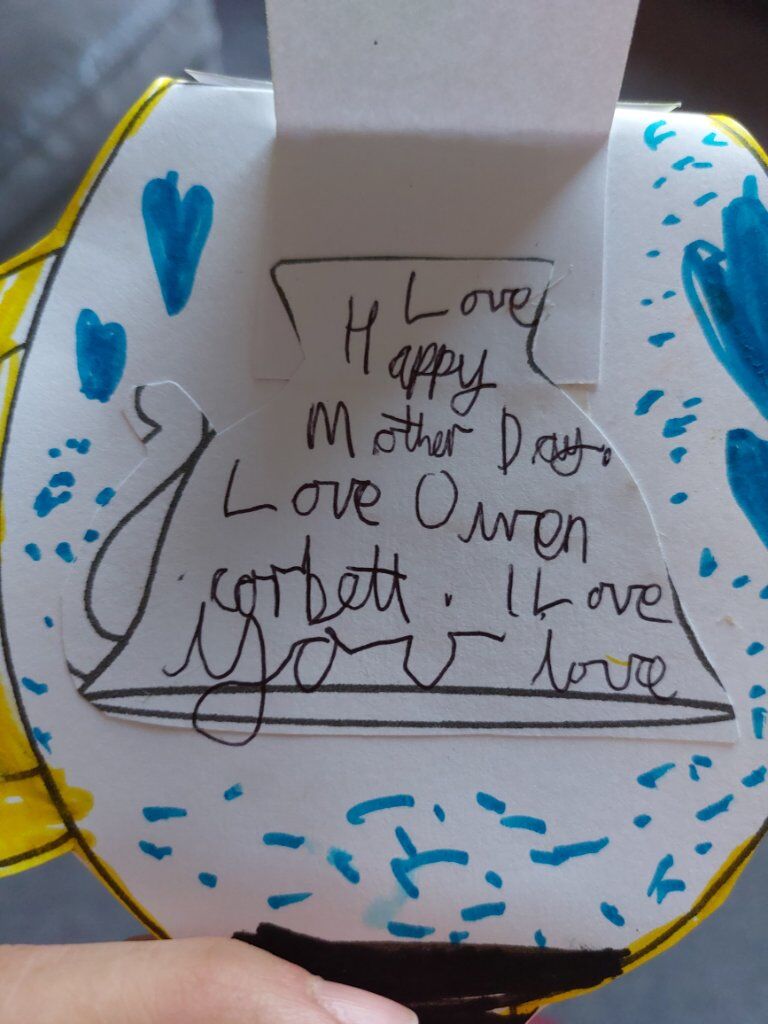 Love
Happy
Mother Day.
Love Owen
corbett. I Love
you love